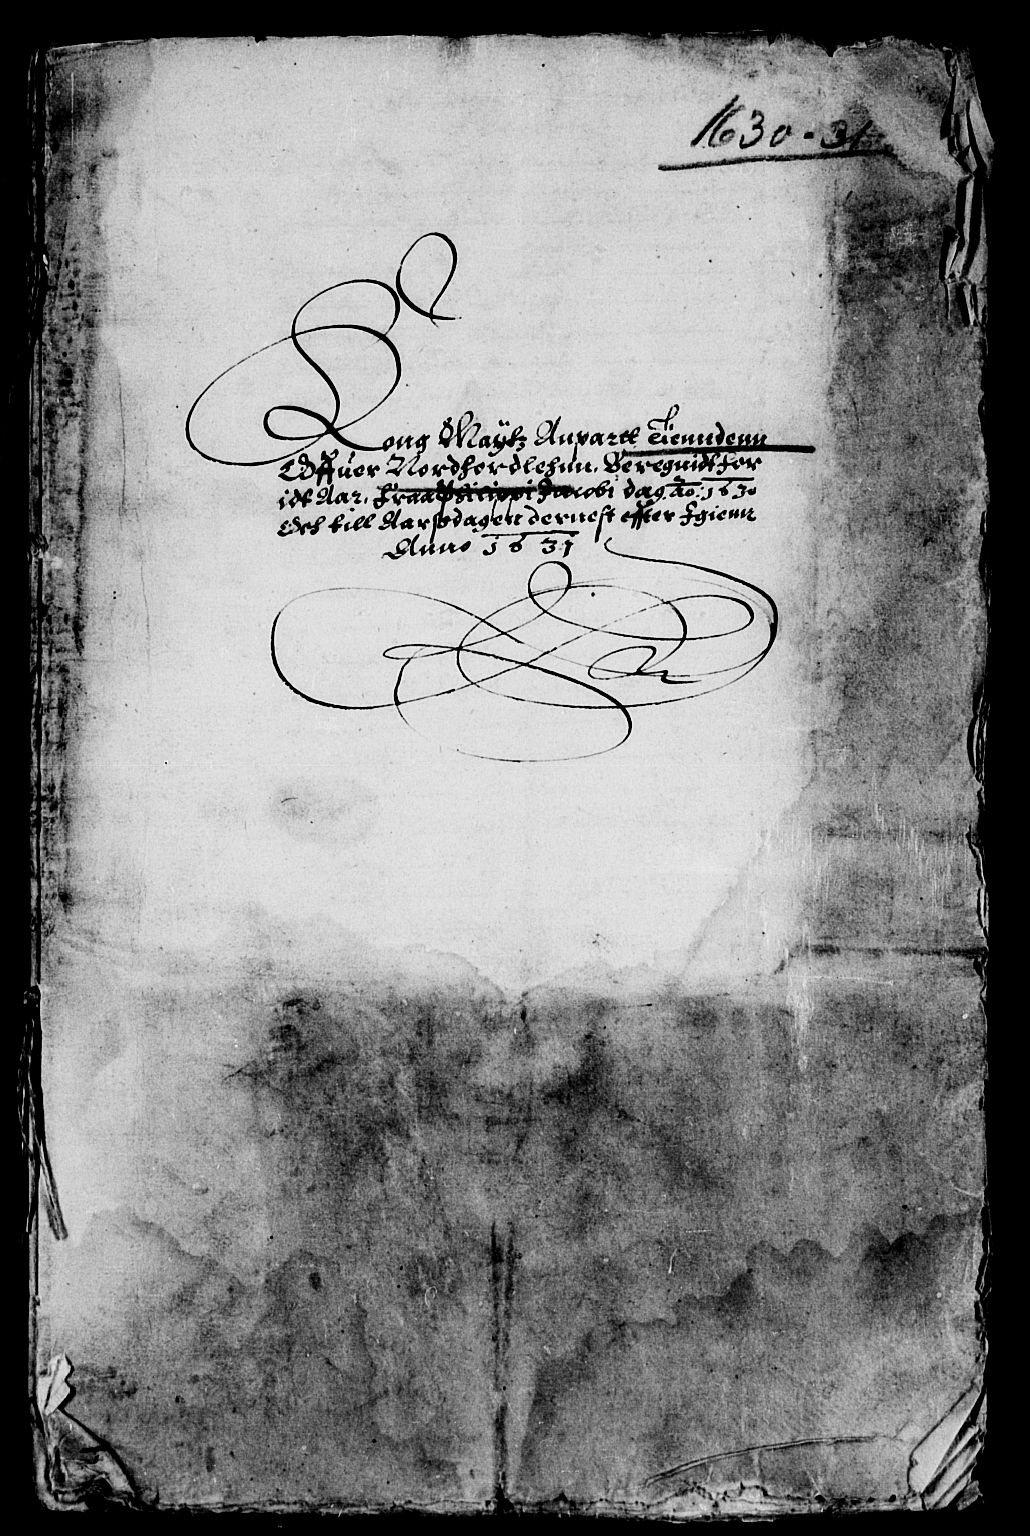 1630-31
Kong Maÿtz Anpartt Tienndenn
Offuer Nordhordlehnn. Beregnidt for
idt Aar. Fraa Philippi Jacobi dag Ao: 1630
Och till Aarsdagen dernest effter Igienn
Anno 1631